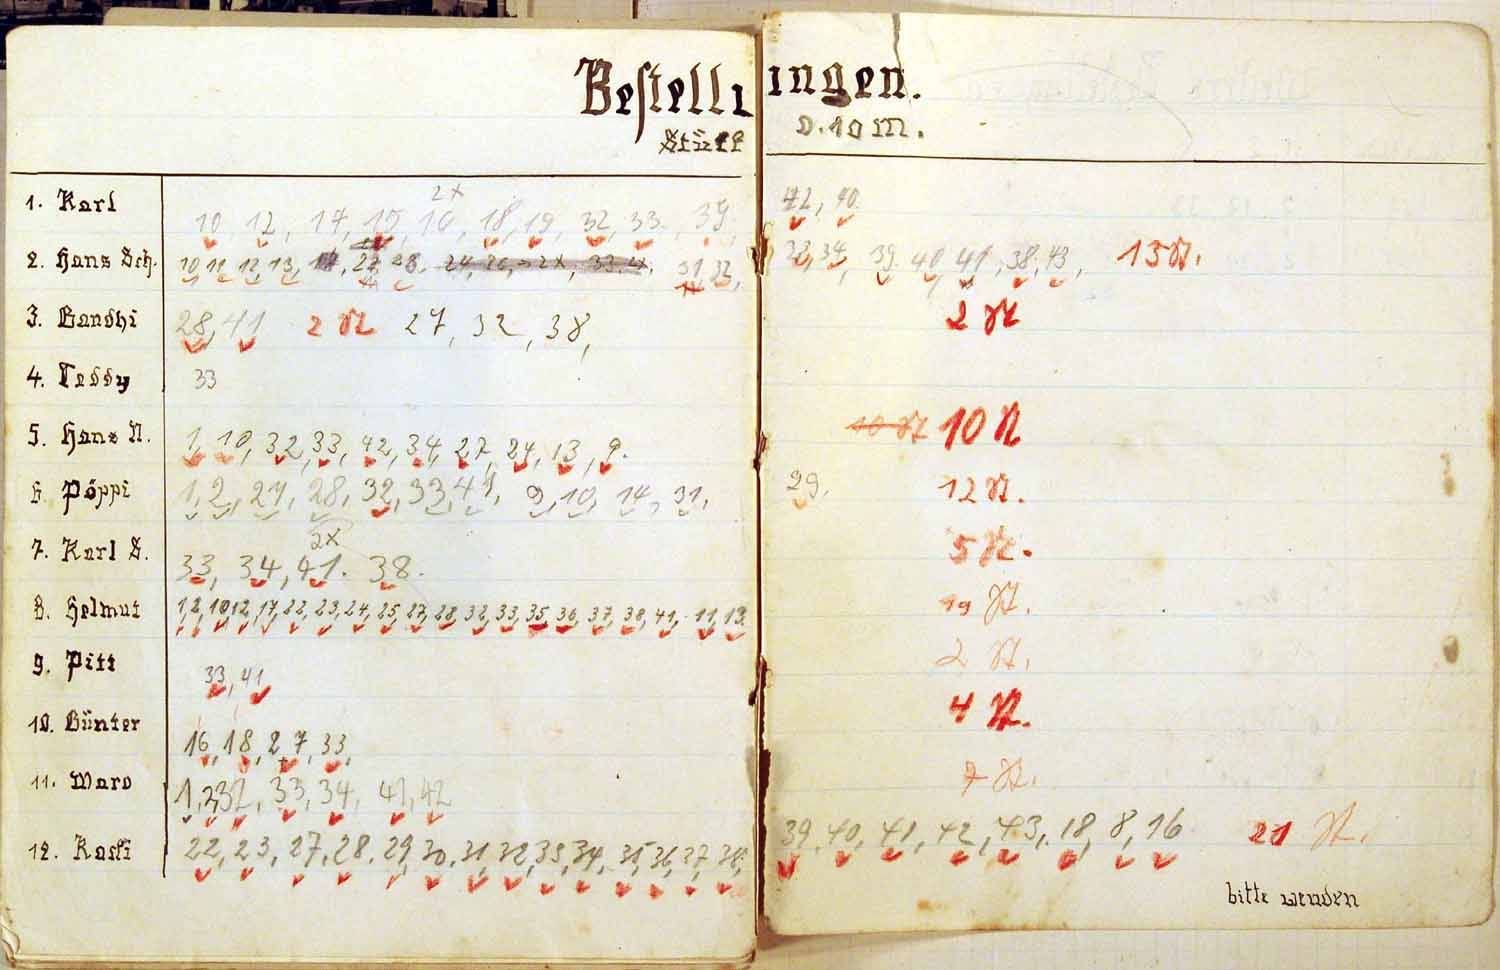 Bestellungen.
Stück 0.10 M.
1. Karl 10, 12, 17, 15, 16, 2x 18, 19, 32, 33, 39, 42, 40.
2. Hans Sch. 10, 11, 12, 13, 28, 31, 32, 33, 34, 39, 40, 41, 38, 43, 13 St.
3. Gandhi 28, 41 2 St 27, 32, 38, 2 St
4. Teddy 33
5. Hans N. 1, 10, 32, 33, 42, 34, 27, 24, 13, 9. 10 St 10 St
6. Pöppi 1, 2, 27, 28, 32, 33, 41, 9, 10, 14, 31, 29, 12 St.
7. Karl S. 33, 34, 2x 41. 38. 5 St.
8. Helmut 1, 2, 10, 12, 17, 22, 23, 24, 25, 27, 28, 32, 33, 35, 36, 37, 38, 41, 11, 13. 19 St.
9. Pitt 33, 41 2 St.
10. Günter 16, 18, 27, 33, 4 St.
11. Maro 1, 2, 32, 33, 34, 41, 42 7 St.
12. Kaski 22, 23, 27, 28, 29, 30, 31, 32, 33, 34, 35, 36, 37, 38, 39, 40, 41, 42, 43, 18, 8, 16 21 St.
bitte wenden